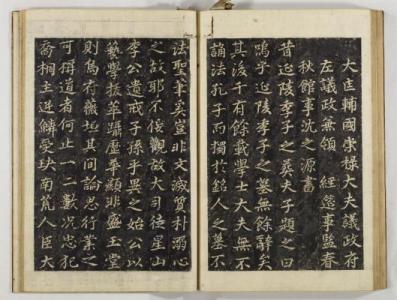 大匡輔國崇祿大夫議政府
左議政兼領 經筵事監春
秋館事沈之源書
昔延陵季子之葬夫子題之曰
嗚乎延陵季子之墓無餘辭矣
其後千有餘載學士大夫無不
誦法孔子而獨於銘人之墓不
法聖筆奚豈非文滅質朴溺心
之故耶不佞觀故大司徒星山
李公遺戒子孫乎異之始公以
藝學拔萃躡歷華顯非玉堂
則烏府薇垣其間論思行業之
可稱道者何止一二數況忠犯
喬桐主逆鱗受玦南荒人臣大